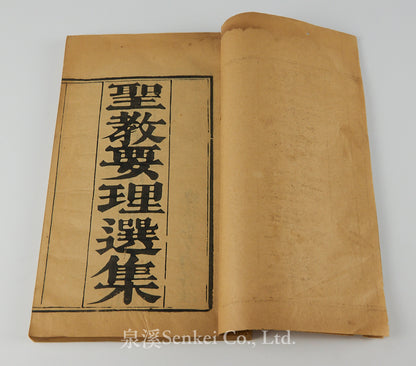 聖教要理選集
泉溪Senkei Co., Ltd.